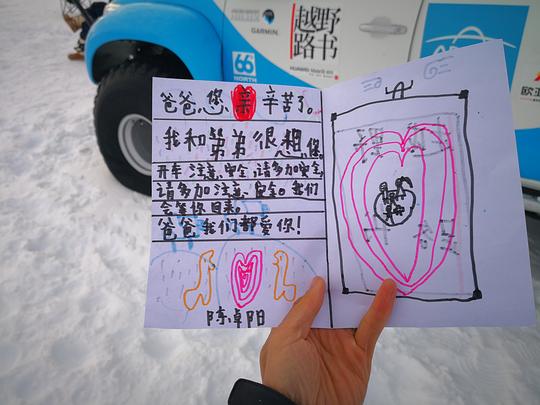 越野
路书
GARMIN
66
NORTH
爸爸,您辛苦了。
我和弟弟很想您,
开车注意,安全,请多加安全,
请多加注意、安全。我们
会等你回来。
爸爸我们都爱你!
陈卓阳